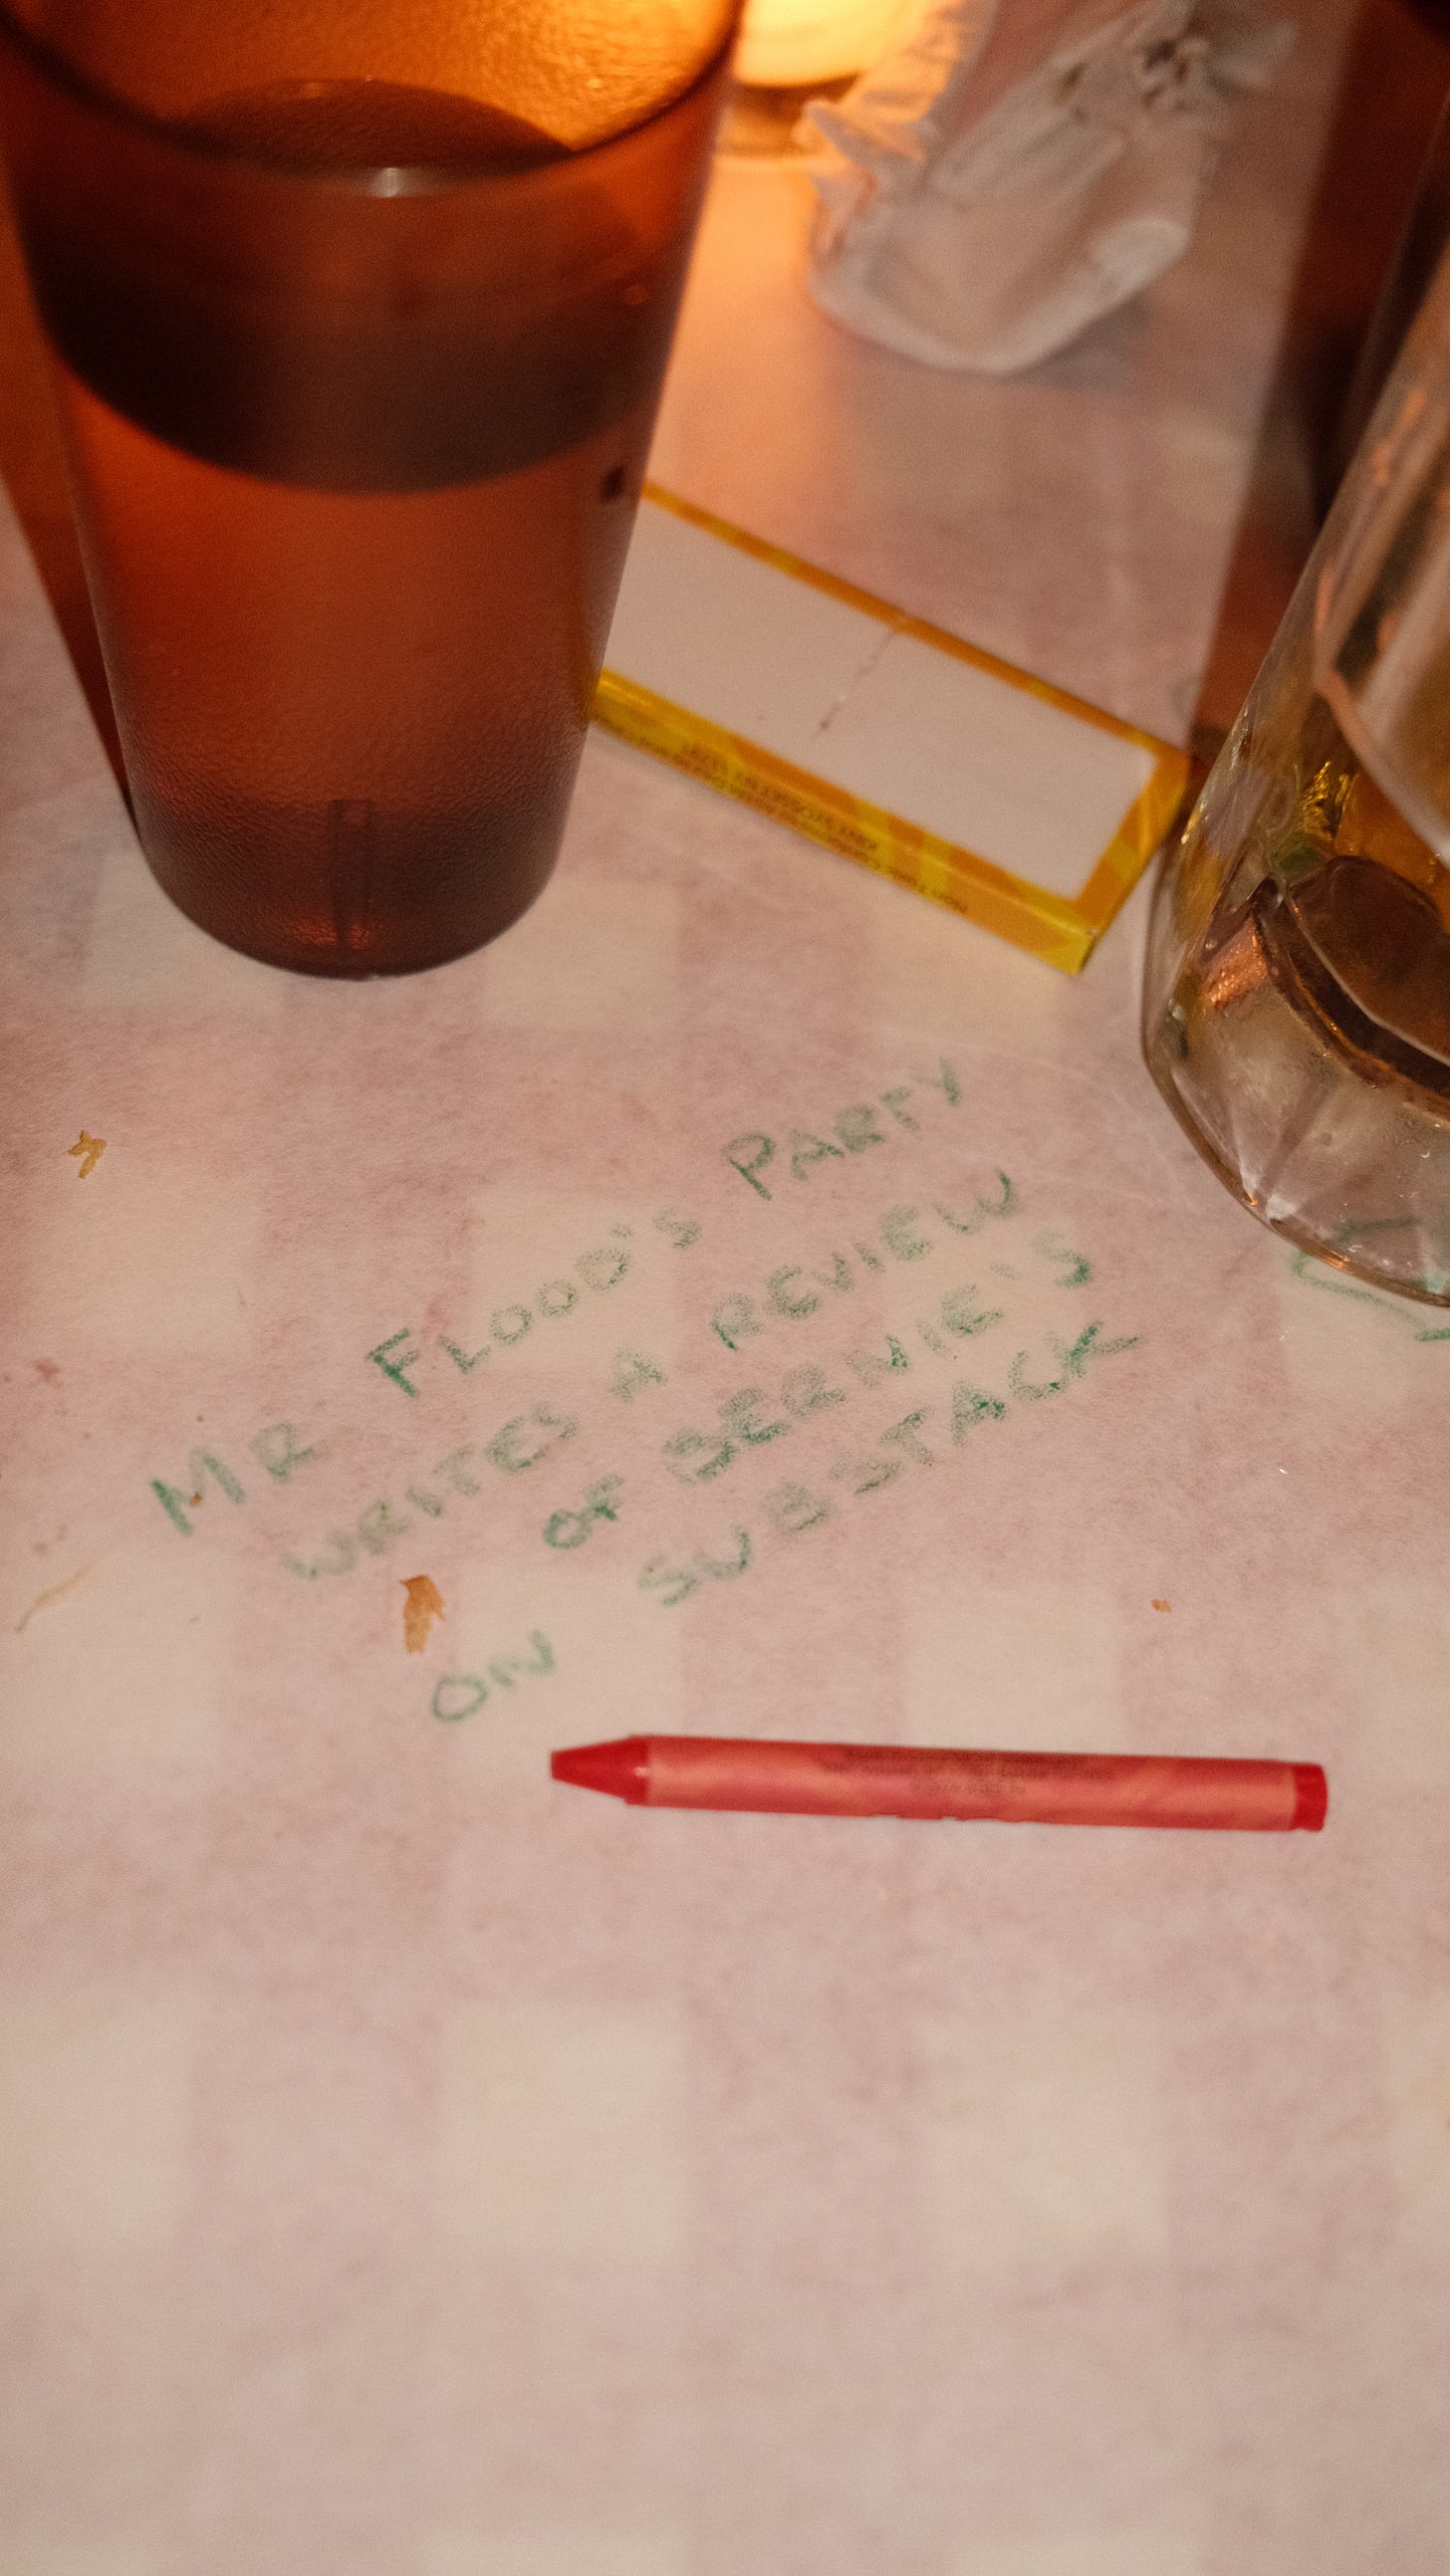 MR FLOOD'S PARTY
WRITES A REVIEW
OF BERNIE'S
ON SUBSTACK